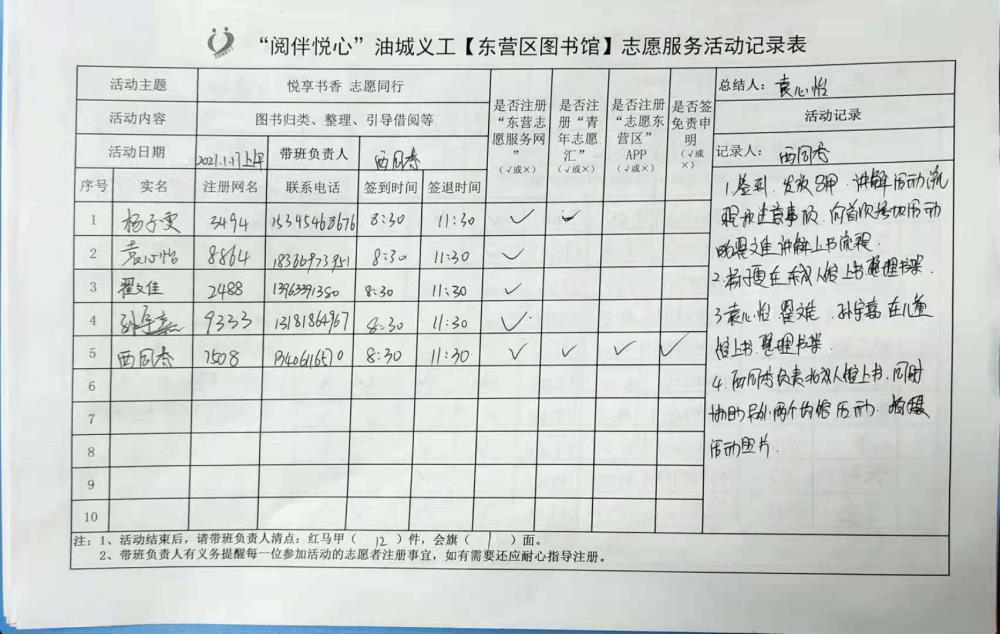 “阅伴悦心”油城义工【东营区图书馆】志愿服务活动记录表
活动主题 悦享书香 志愿同行
活动内容 图书归类、整理、引导借阅等
活动日期 2021.1.17上午 带班负责人 西同春
是否注册“东营志愿服务网”(√或×)
是否注册“青年志愿汇”(√或×)
是否注册“志愿东营区”APP(√或×)
是否签免责申明(√或×)
总结人：袁心怡
活动记录
记录人：西同春
序号 实名 注册网名 联系电话 签到时间 签退时间
1 杨子雯 3494 15345468676 8:30 11:30 ✓ ✓
2 袁心怡 8864 18366973951 8:30 11:30 ✓
3 翟文佳 2488 13963391380 8:30 11:30 ✓
4 孙宇嘉 9333 13181864967 8:30 11:30 ✓
5 西同春 7508 8:30 11:30 ✓ ✓ ✓ ✓
6
7
8
9
10
1.签到.发放马甲.讲解活动流
程和注意事项.向首次参加活动
的翟文佳讲解上书流程.
2.杨子雯在成人馆上书.整理书架.
3.袁心怡.翟文佳.孙宇嘉在儿童
馆上书.整理书架.
4.西同春负责成人馆上书.同时
协助 两个 馆活动.拍摄
活动照片.
注：1、活动结束后，请带班负责人清点：红马甲（ 12 ）件，会旗（ 1 ）面。
2、带班负责人有义务提醒每一位参加活动的志愿者注册事宜，如有需要还应耐心指导注册。